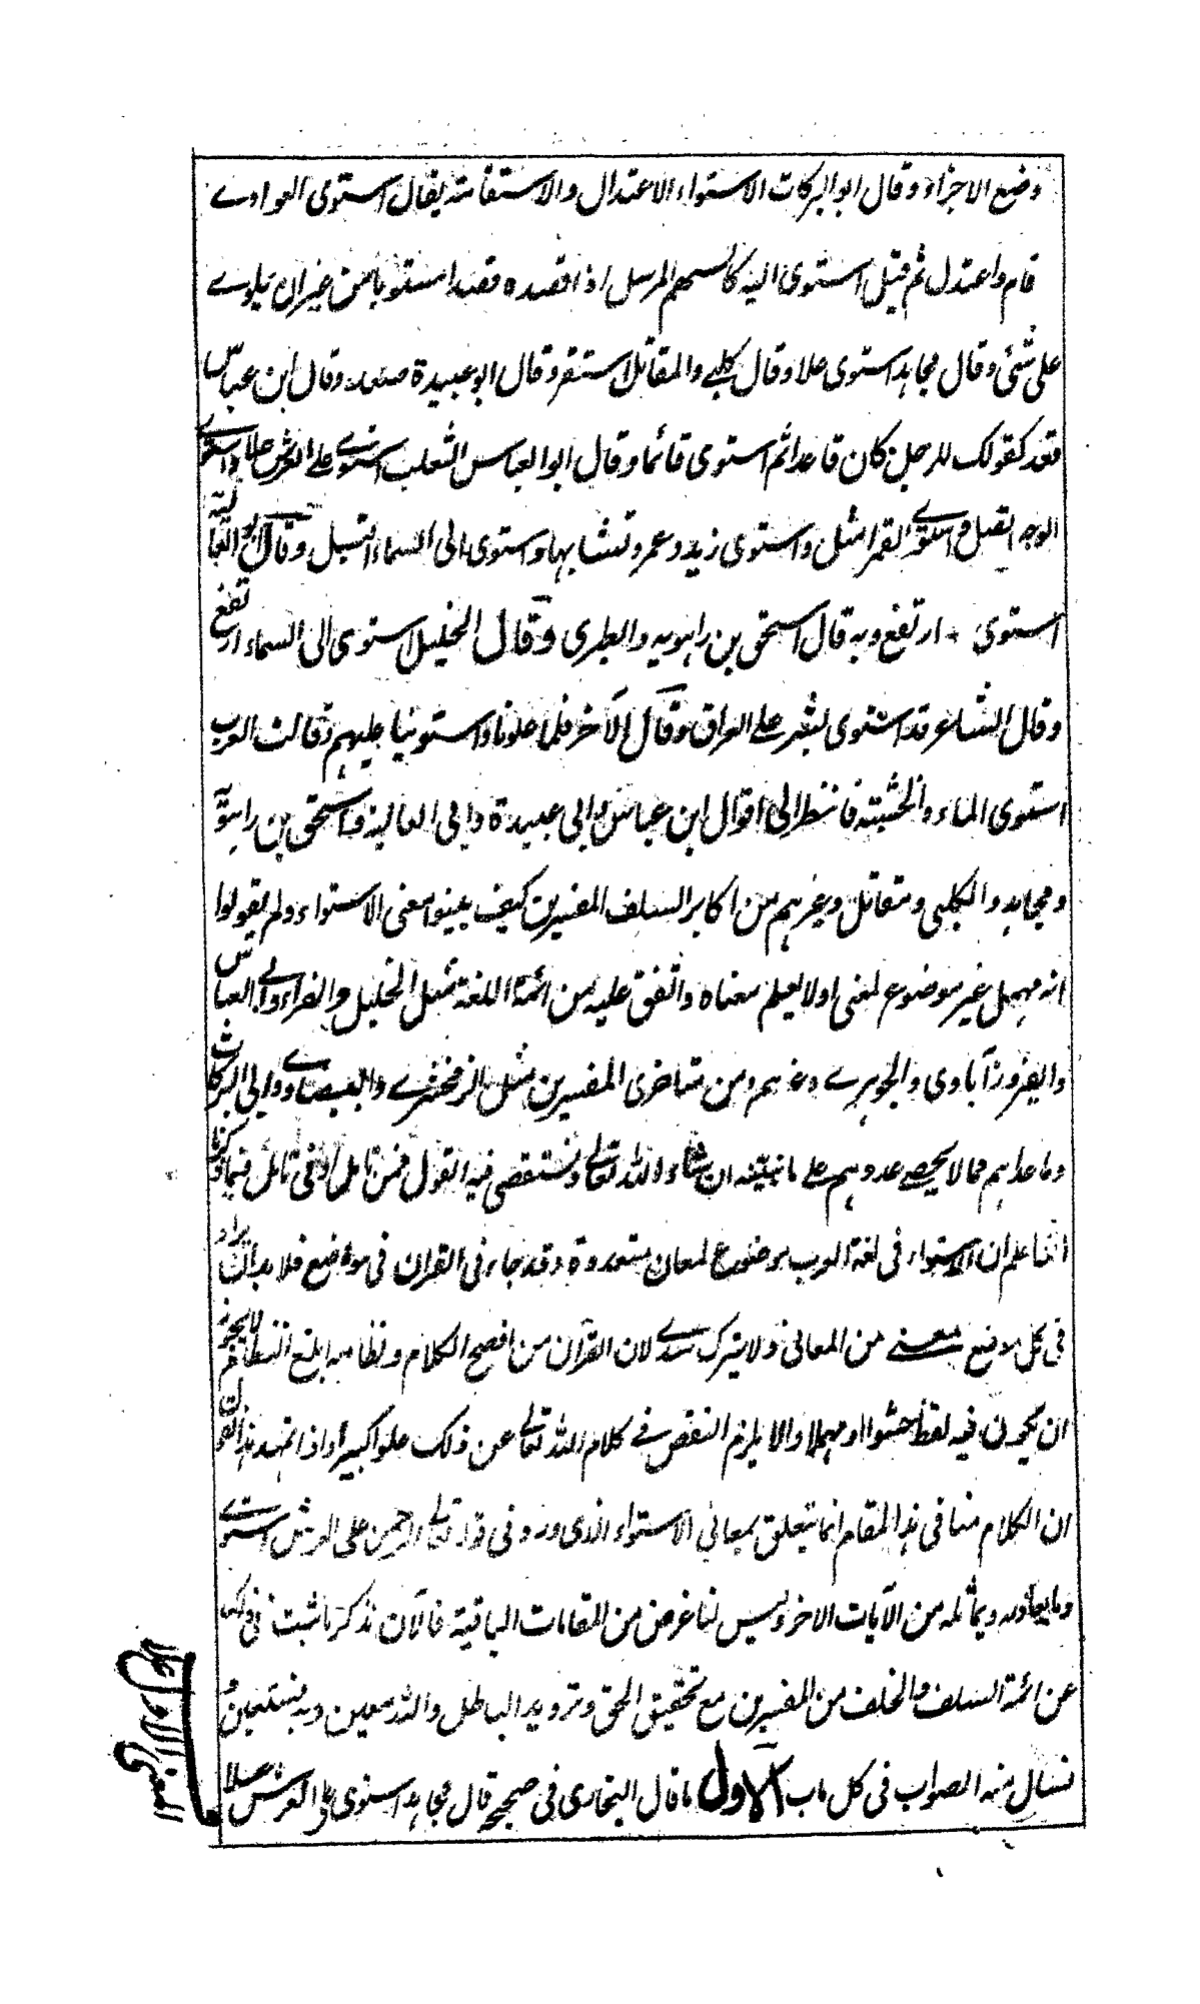 وضع الاجزاء وقال ابو البركات الاستواء الاعتدال والاستقامة يقال استوى العود اے
قام واعتدل ثم قيل استوى اليه كالسهم المرسل اذا قصده قصدا مستويا من غير ان يلوے
على شئ وقال مجاهد استوى علا وقال كلبے والمقاتل استقر وقال ابو عبيدة صعد وقال ابن عباس
قعد كقولك للرجل كان قاعدا ثم استوى قائما وقال ابو العباس الثعلب استوے على العرش علا واستوے
الوجه اتصل واستوے القمر امتلا واستوى زيد وعمرو تشابها واستوى الى السماء اقبل وقال ابو العالية
استوى ارتفع وبه قال اسحق بن راهويه والطبرى وقال الخليل استوى الى السماء ارتفع
وقال الشاعر قد استوى بشر على العراق وقال الآخر فلما علونا واستوينا عليهم وقالت العرب
استوى الماء والخشبة فانظر الى اقوال ابن عباس وابى عبيدة وابى العالية واسحق بن راهويه
ومجاهد والكلبى ومقاتل وغيرهم من اكابر السلف المفسرين كيف بينوا معنى الاستواء ولم يقولوا
انه مهمل غير موضوع لمعنى او لا يعلم معناه واتفق عليه من ائمة اللغة مثل الخليل والفراء وابى العباس
والفيروزآبادى والجوهرے وغيرهم ومن متاخرى المفسرين مثل الزمخشرے والبيضاوے وابى البركات
وما عداهم مما لا يحصے عددهم على ما نبينه ان شاء الله تعالى ونستقصى فيه القول فمن تامل ادنى تامل فيما ذكرنا
علم ان الاستواء فى لغة العرب موضوع لمعان متعددة وقد جاء فى القران فى مواضع فلا بد ان يراد
فى كل موضع معنے من المعانى ولا يترك سدے لان القرآن من افصح الكلام ونظامه ابلغ النظام لا يجوز
ان يكون فيه لفظ حشوا او مهملا والا يلزم النقص فے كلام الله تعالى عن ذلك علوا كبيرا واذا تمهد هذا فنقول
ان الكلام منا فى هذا المقام انما يتعلق بمعانى الاستواء الذى ورد فى قوله تعالى الرحمن على العرش استوے
وما يعادله ويماثله من الآيات الاخر وليس لنا غرض من المقامات الباقية فالآن نذكر ما ثبت فى
عن ائمة السلف والخلف من المفسرين مع تحقيق الحق وترويد الباطل والله معين وبه نستعين و
نسال منه الصواب فى كل باب الاول ما قال البخارى فى صحيحه قال مجاهد استوى على العرش علا
المعنى الاول علا